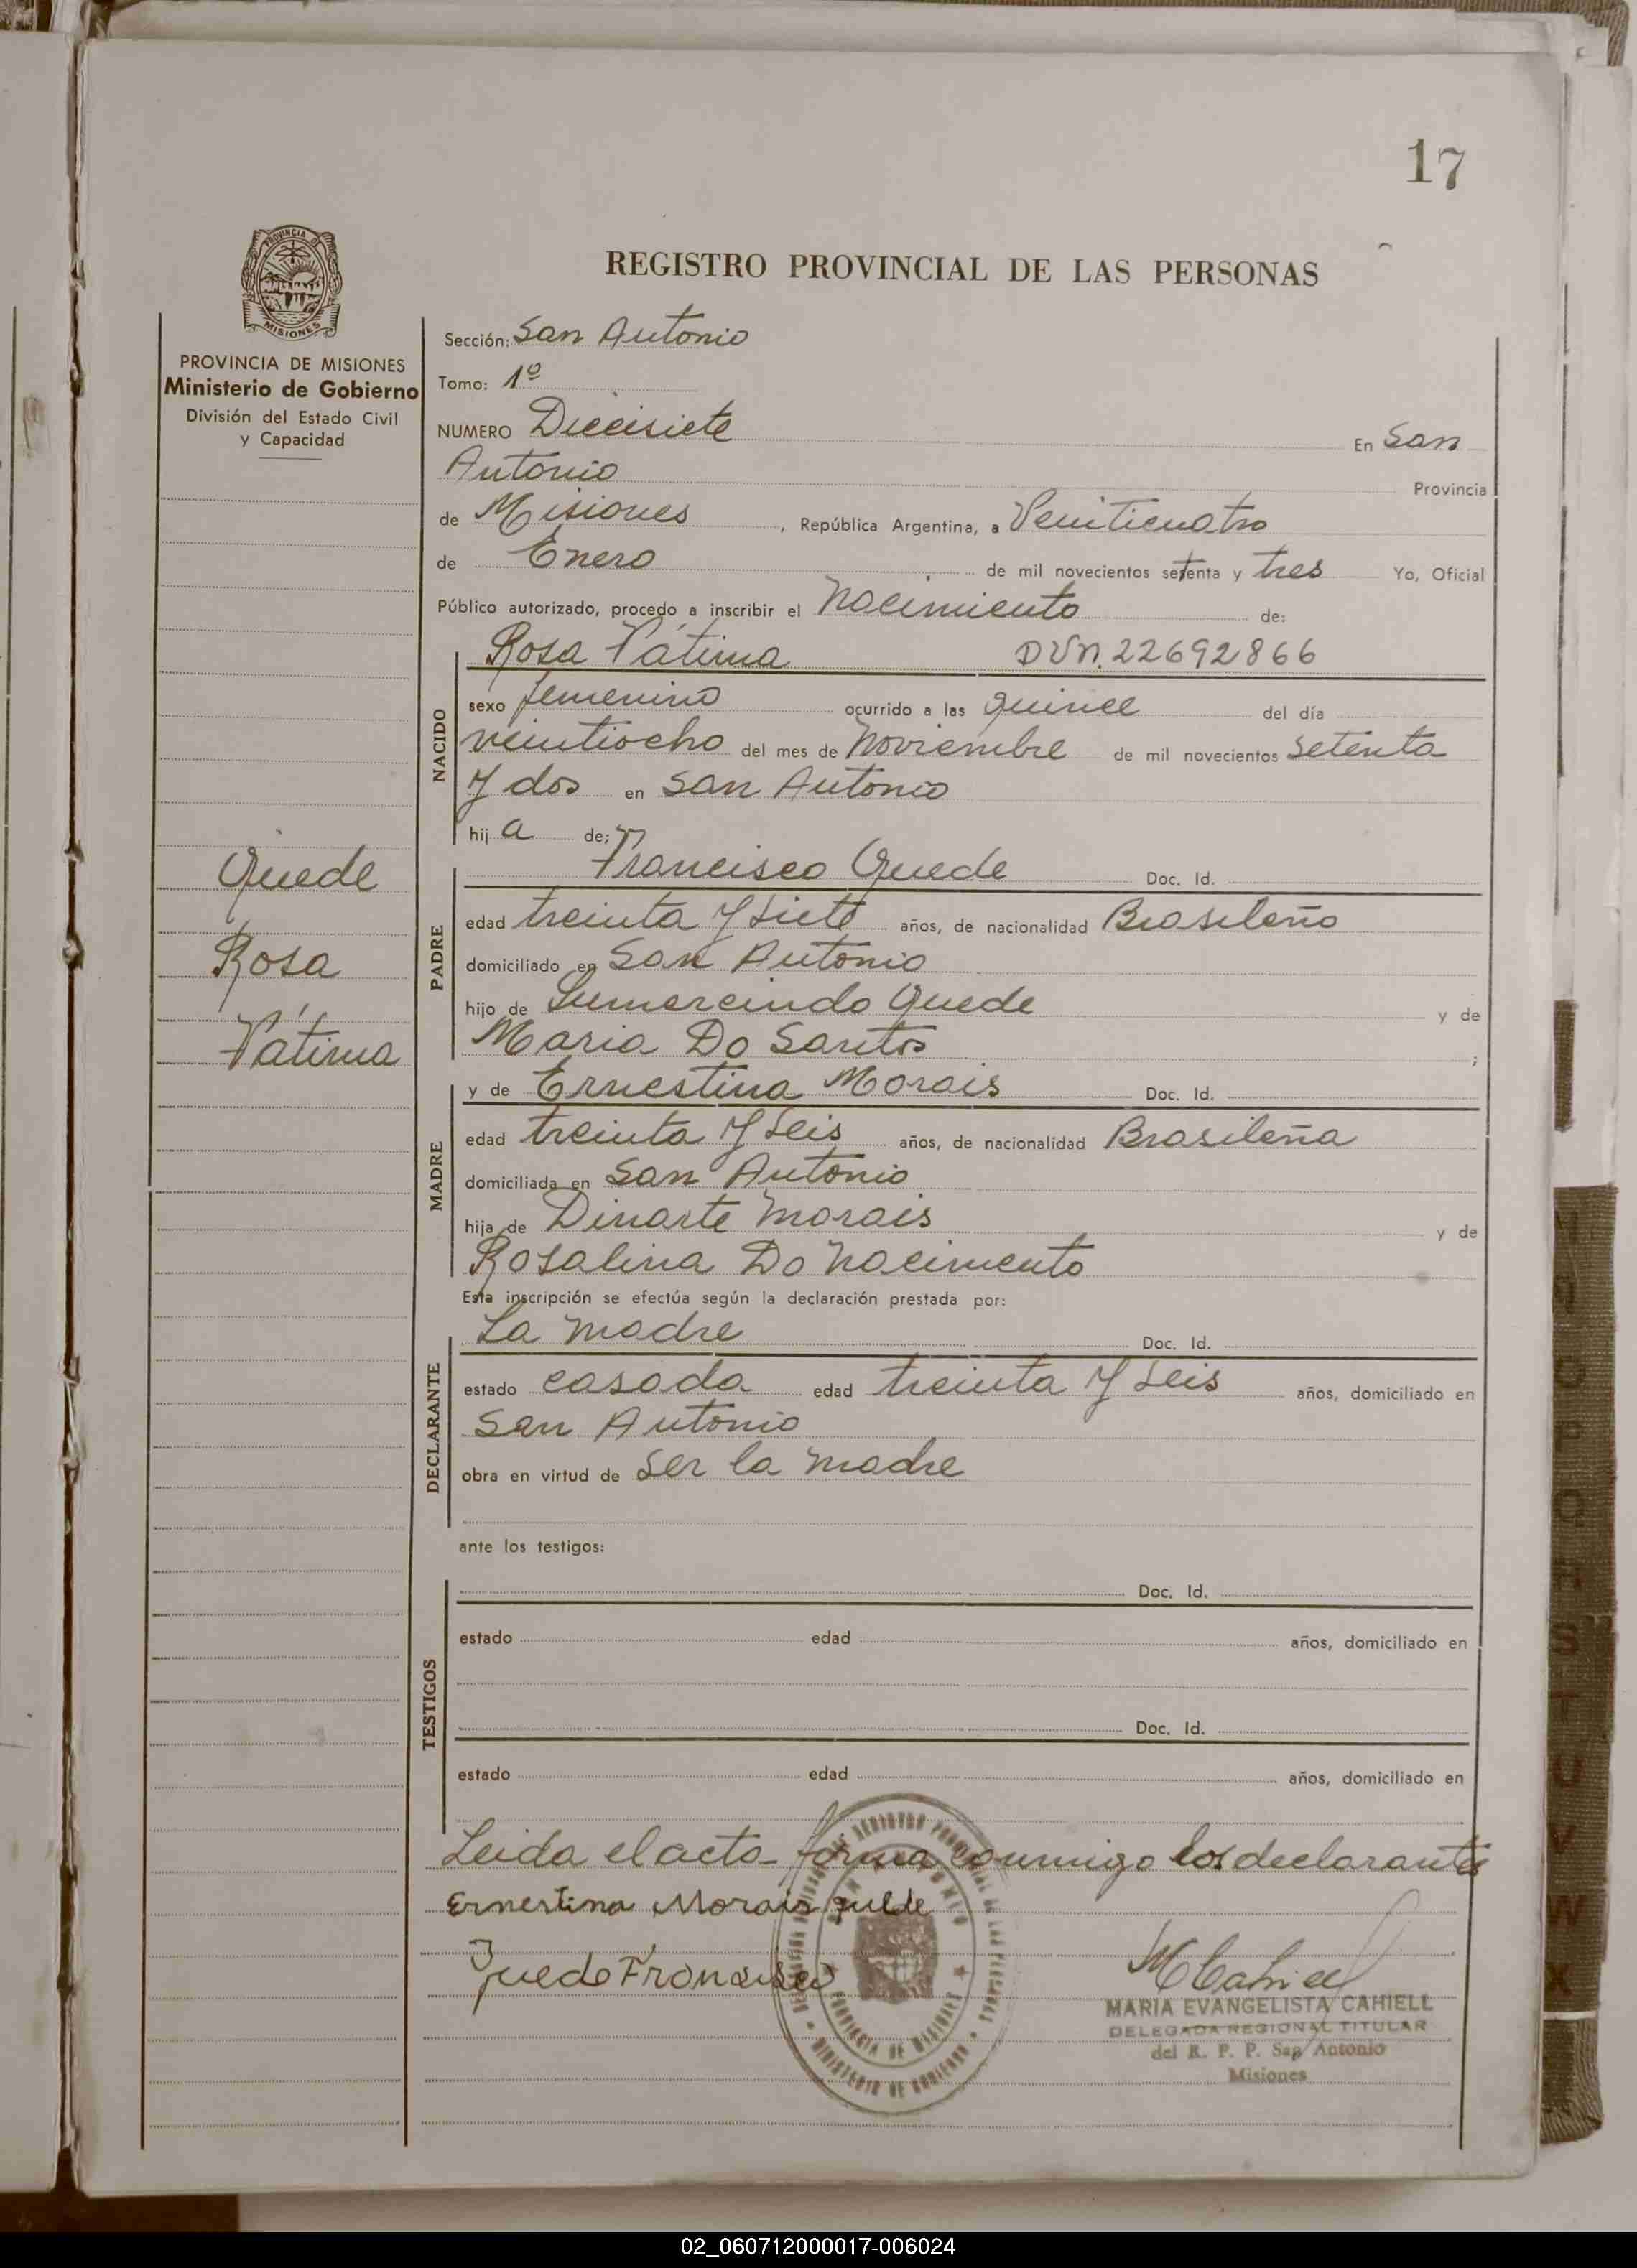 17
REGISTRO PROVINCIAL DE LAS PERSONAS
PROVINCIA DE MISIONES
Ministerio de Gobierno
División del Estado Civil
y Capacidad
Quede
Rosa
Fátima
Sección: San Antonio
Tomo: 1º
NUMERO Diecisiete En San
Antonio Provincia
de Misiones, República Argentina, a Veinticuatro
de Enero de mil novecientos setenta y tres Yo, Oficial
Público autorizado, procedo a inscribir el Nacimiento de:
NACIDO
Rosa Fátima DUN. 22692866
sexo femenino ocurrido a las quince del día
veintiocho del mes de Noviembre de mil novecientos setenta
y dos en San Antonio
hij a de;
PADRE
Francisco Quede Doc. Id.
edad treinta y siete años, de nacionalidad Brasileño
domiciliado en San Antonio
hijo de Quede y de
Maria Do Santos ;
MADRE
y de Ernestina Morais Doc. Id.
edad treinta y seis años, de nacionalidad Brasileña
domiciliada en San Antonio
hija de Dinarte Morais y de
Rosalina Do Nacimento
Esta inscripción se efectúa según la declaración prestada por:
DECLARANTE
La madre Doc. Id.
estado casada edad treinta y seis años, domiciliado en
San Antonio
obra en virtud de ser la madre
ante los testigos:
TESTIGOS
Doc. Id.
estado edad años, domiciliado en
Doc. Id.
estado edad años, domiciliado en
Leida el acta firma conmigo los declarantes
Ernestina Morais
Francisco
MARIA EVANGELISTA CAHIELL
DELEGADA REGIONAL TITULAR
del R. P. P. San Antonio
Misiones
PROVINCIA DE MISIONES
MINISTERIO DE GOBIERNO
02_060712000017-006024